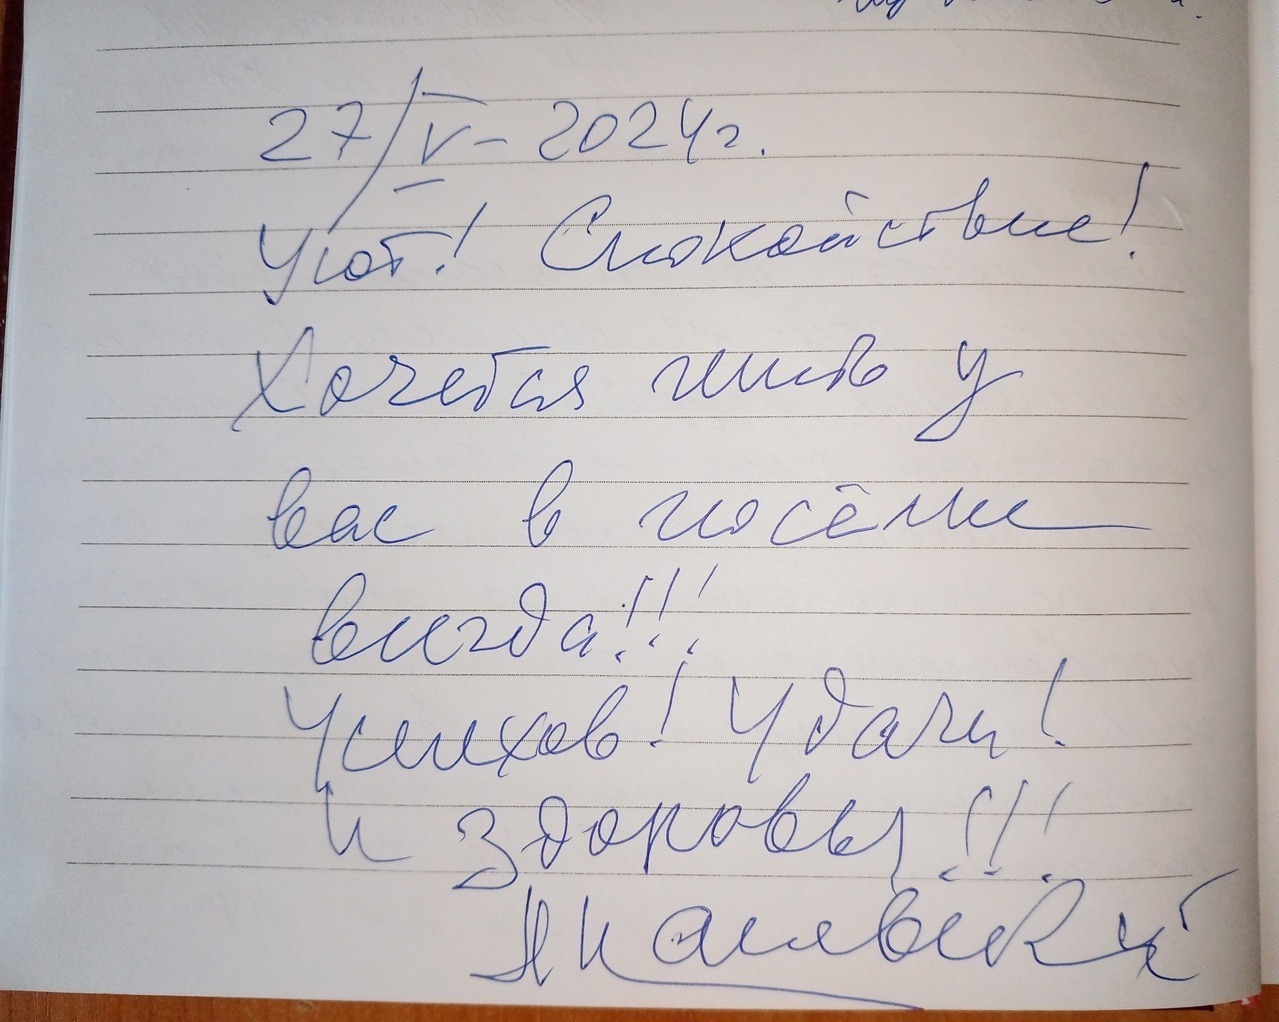 27/V - 2024г.
Уют! Спокойствие!
Хочется жить у
вас в посёлке
всегда!!!
Успехов! Удачи!
и здоровья!!!